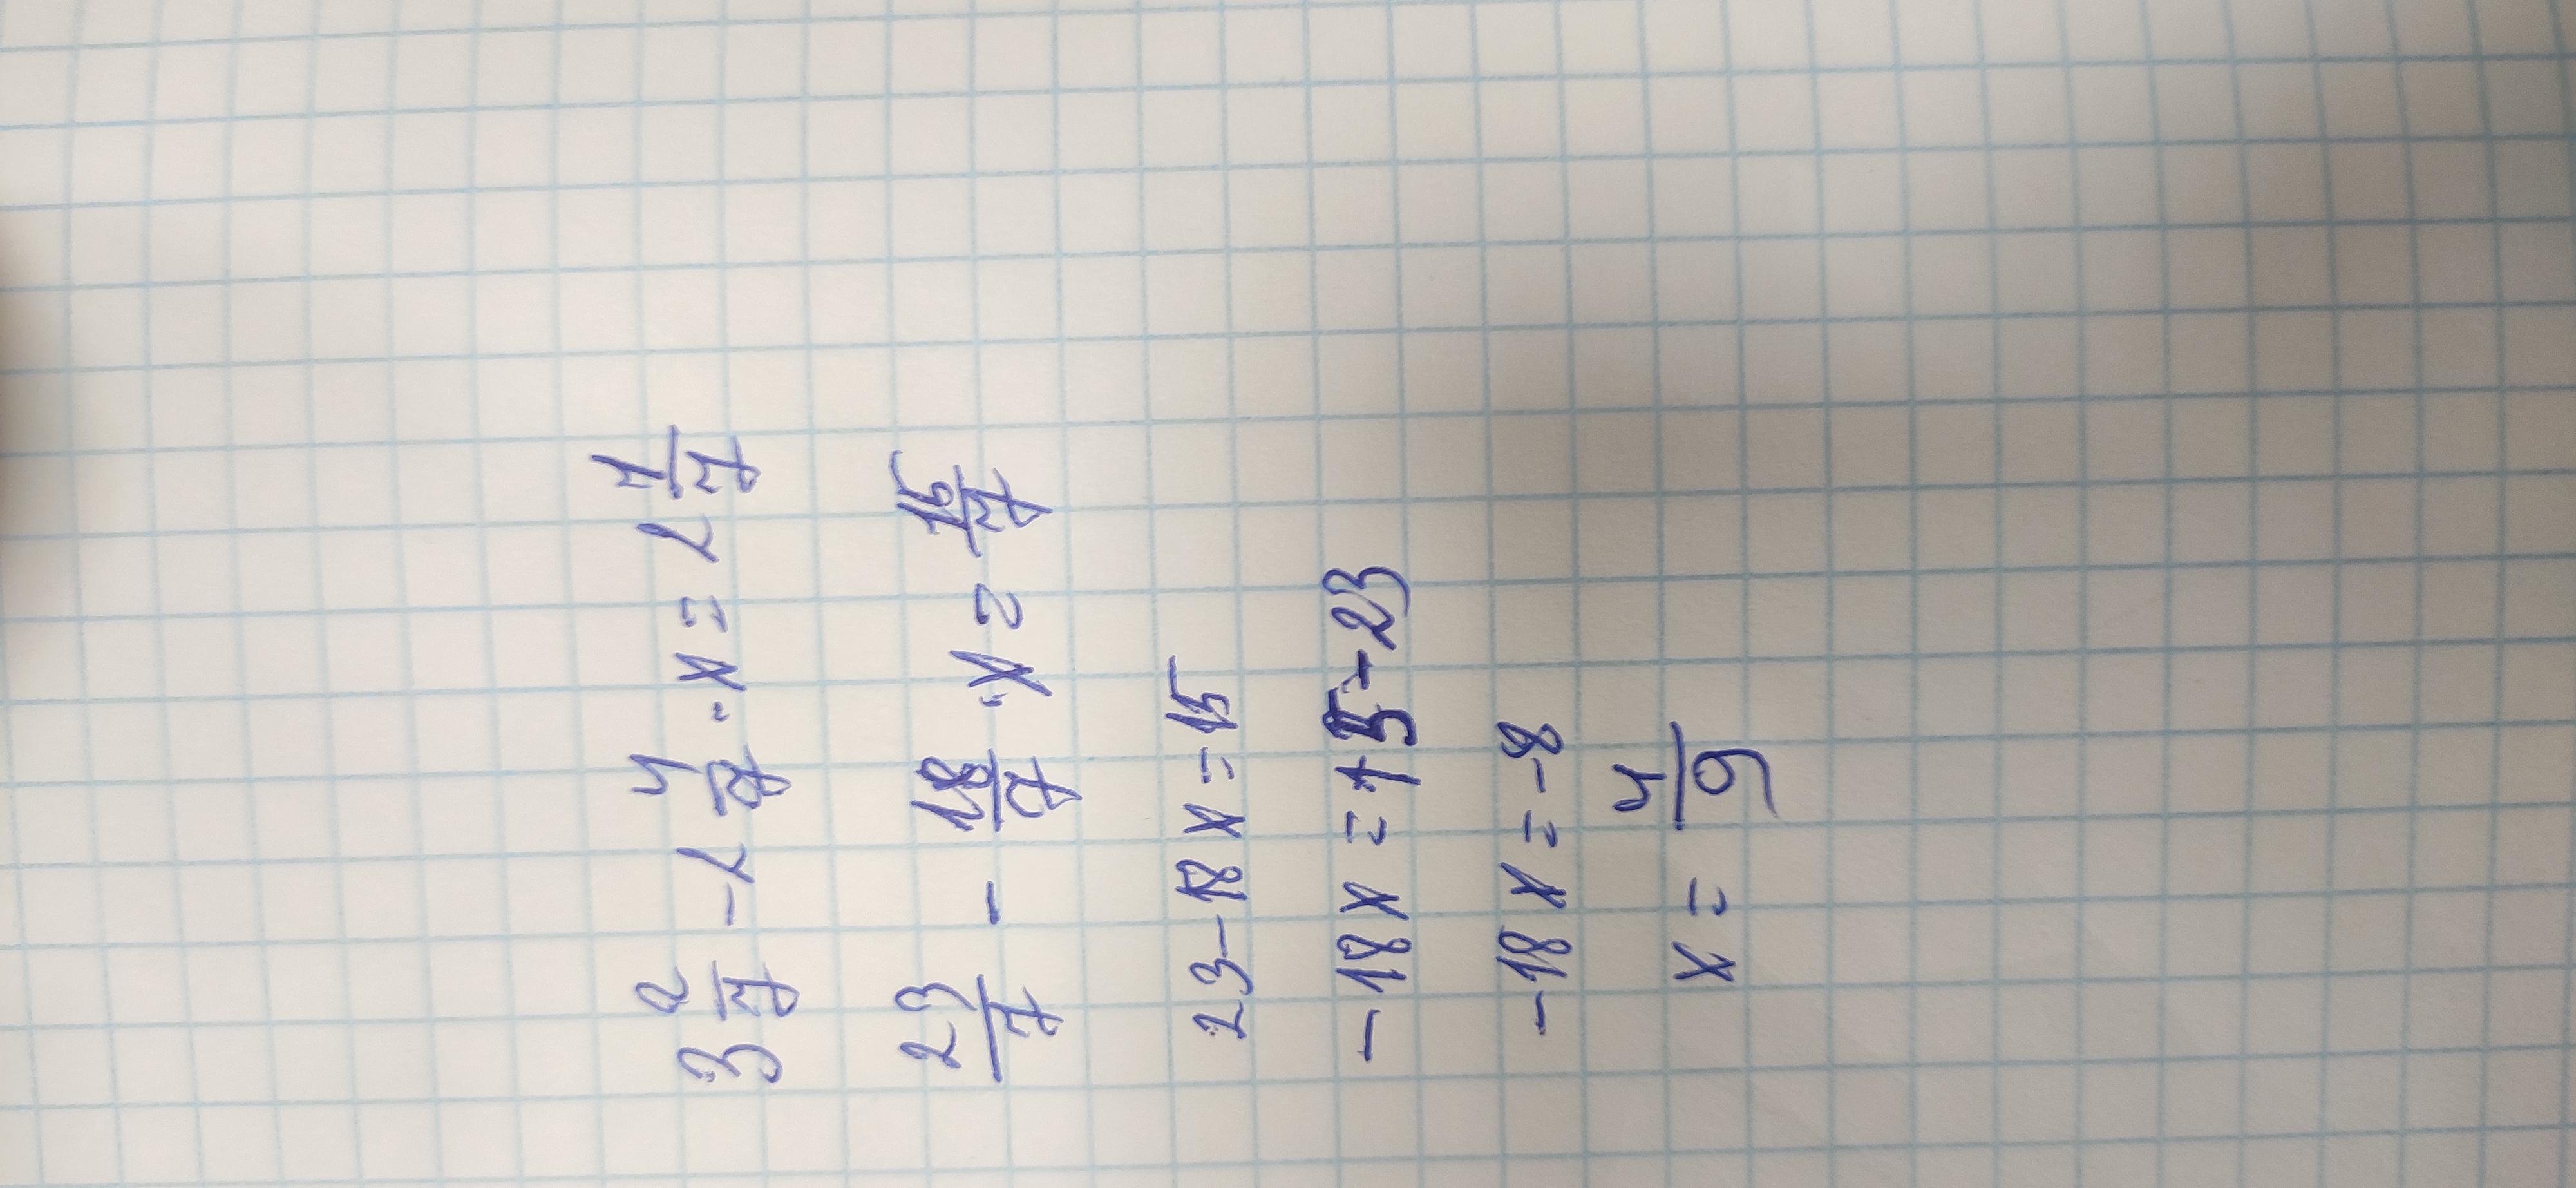 3 2/7 - 2 4/7 · x = 2 1/7
23/7 - 18/7 · x = 15/7
23 - 18 x = 15
- 18 x = 15 - 23
- 18 x = - 8
x = 4/9